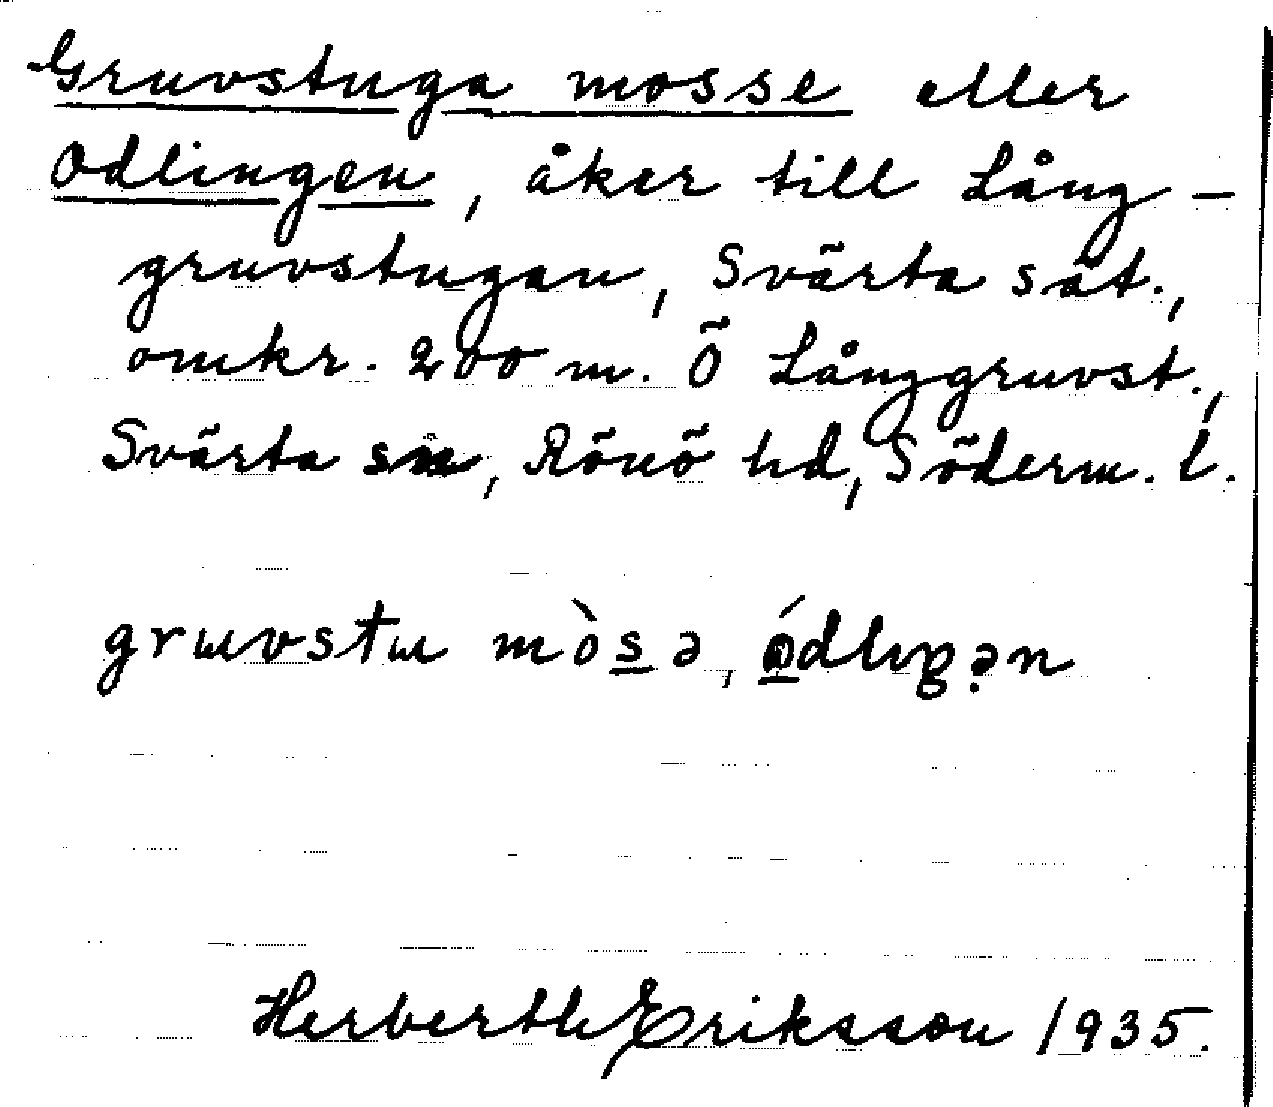 Gruvstuga mosse eller
Odlingen, åker till Lång-
gruvstugan, Svärta sät.,
omkr. 200 m. Ö Långgruvst.,
Svärta sn, Rönö hd, Söderm. l.
grɯvstɯ mòs̲ə, ó̲dlıŋən
Herberth Eriksson 1935.